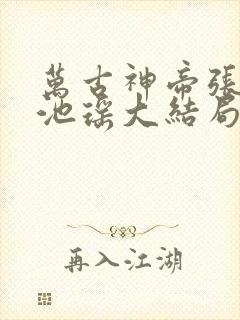 萬古神帝張
池謠大結局
再入江湖